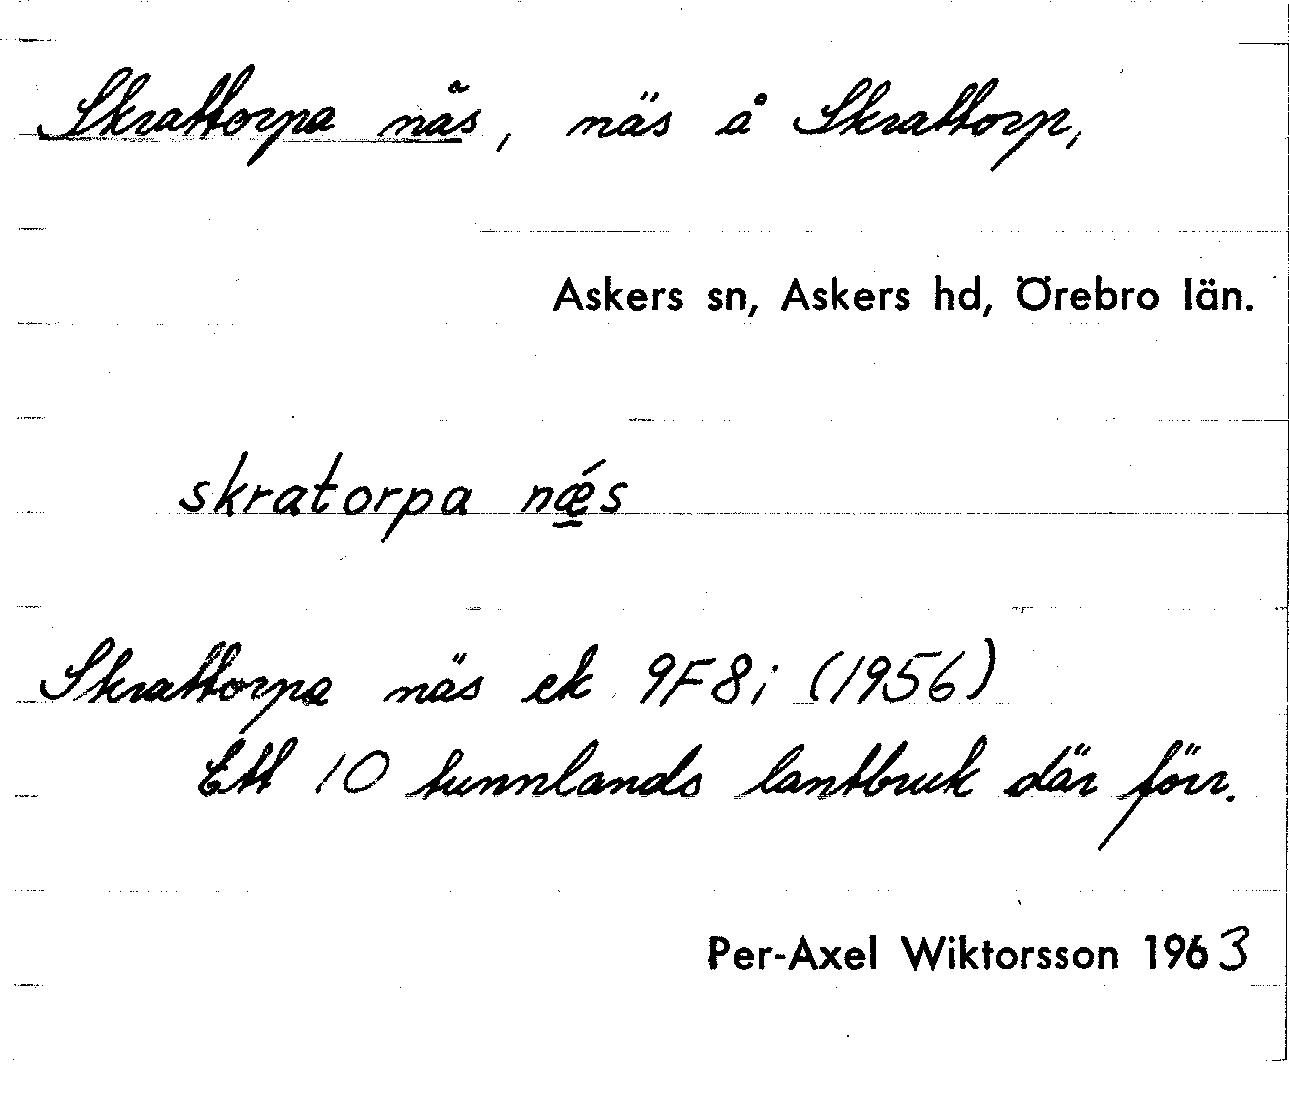 Skrattorpa näs, näs å Skrattorp,
Askers sn, Askers hd, Örebro län.
skratorpa nǽs
Skrattorpa näs ek 9F8i (1956)
Ett 10 tunnlands lantbruk där förr.
Per-Axel Wiktorsson 1963